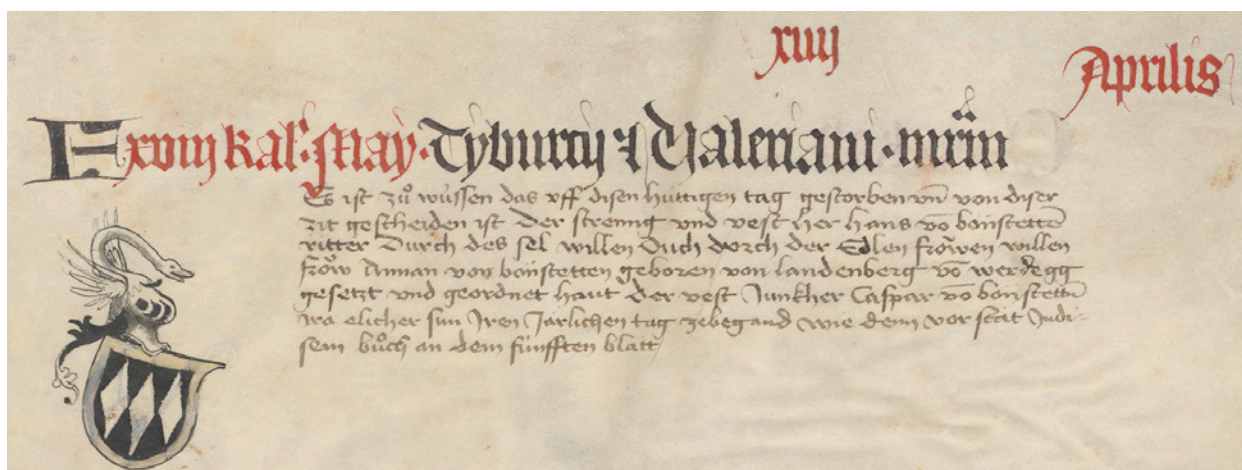 xiiij
Aprilis
F xviij kal' May · Tyburcij ⁊ Valeriani · mr̄m
Es ist zuͦ wüssen das vff disen hüttigen tag gestorben vn̄ von diser
zit gescheiden ist Der streng vnd vest her hans vō bonstettē
ritter Durch des sel willen Ouch dorch der Edlen froͮwen willen
froͮw Annan von bonstetten geboren von landenberg vō werdegg
gesetzt vnd geordnet haut Der vest Junkher Caspar vō bonstettē
ira elicher sun Jren Jarlichen tag zebegand wie denn vor stät Jndi-
sem buͦch an dem fünfften blatt